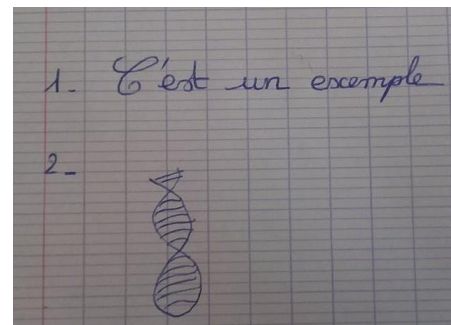 1. C'est un exemple
2-